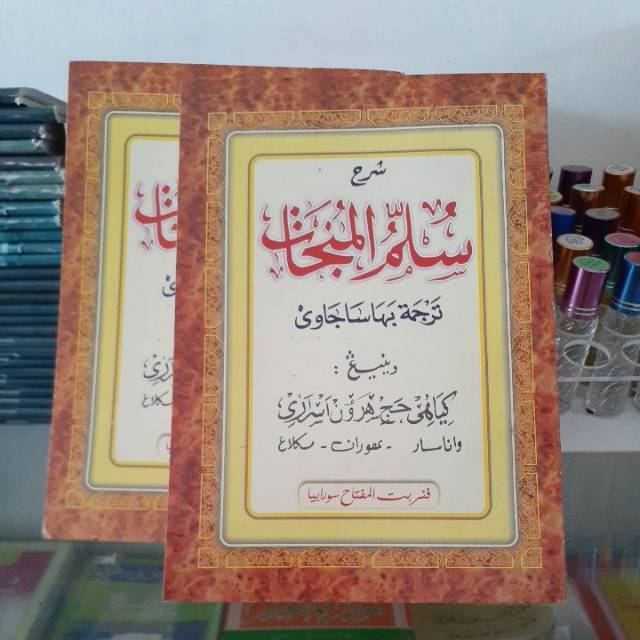 شرح
سُلَّمُ المُنْجَات
تَرْجَمَة بَهَاسَا جَاوِى
دينيڠ :
كياهى حج هرون اسراري
واناسار - تمفوران - مكلاڠ
فنربت المفتاح سورابيا